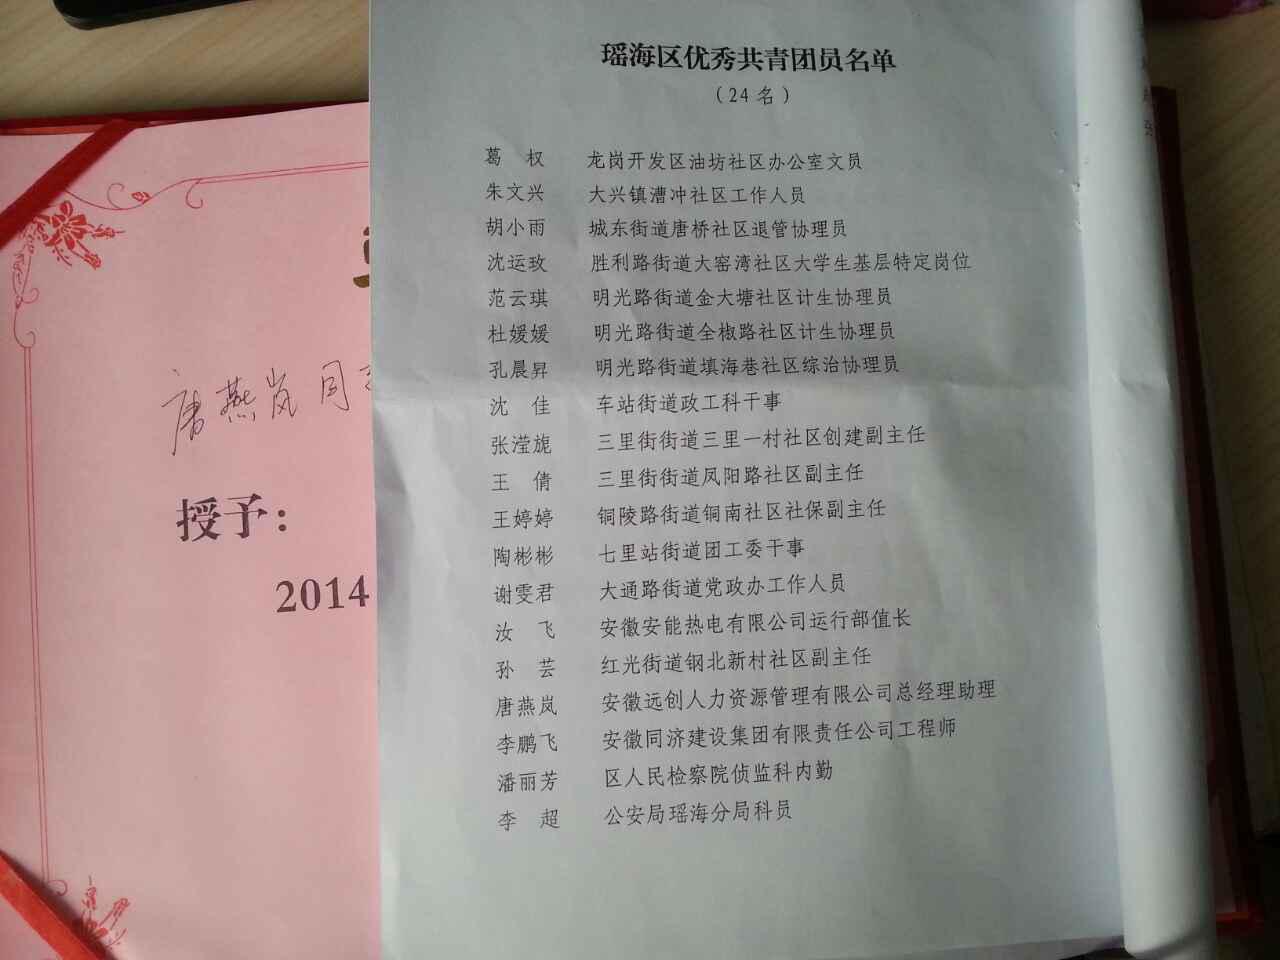 瑶海区优秀共青团员名单
（24名）
葛 权 龙岗开发区油坊社区办公室文员
朱文兴 大兴镇漕冲社区工作人员
胡小雨 城东街道唐桥社区退管协理员
沈运玫 胜利路街道大窑湾社区大学生基层特定岗位
范云琪 明光路街道金大塘社区计生协理员
杜媛媛 明光路街道全椒路社区计生协理员
孔晨昇 明光路街道填海巷社区综治协理员
沈 佳 车站街道政工科干事
张滢旎 三里街街道三里一村社区创建副主任
王 倩 三里街街道凤阳路社区副主任
王婷婷 铜陵路街道铜南社区社保副主任
陶彬彬 七里站街道团工委干事
谢雯君 大通路街道党政办工作人员
汝 飞 安徽安能热电有限公司运行部值长
孙 芸 红光街道钢北新村社区副主任
唐燕岚 安徽远创人力资源管理有限公司总经理助理
李鹏飞 安徽同济建设集团有限责任公司工程师
潘丽芳 区人民检察院侦监科内勤
李 超 公安局瑶海分局科员
唐燕岚同
授予：
2014